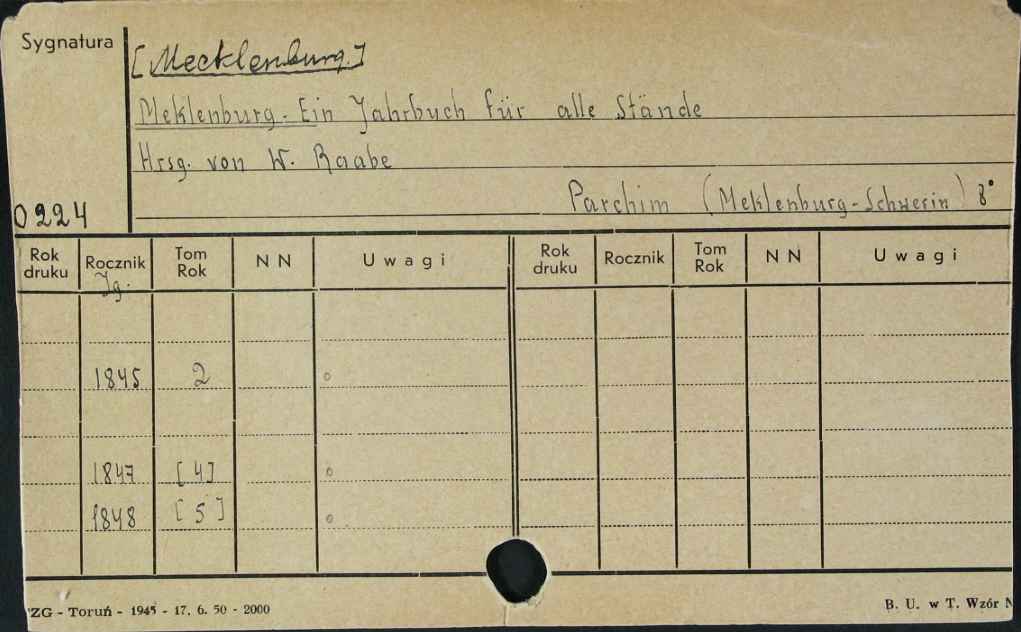 Sygnatura
[Mecklenburg.]
Meklenburg. Ein Jahrbuch für alle Stände
Hrsg. von W. Raabe
Parchim (Meklenburg-Schwerin) 8°
0224
Rok druku Rocznik Tom Rok NN Uwagi Rok druku Rocznik Tom Rok NN Uwagi
Jg.
1845 2 o
1847 [4] o
1848 [5] o
ZG - Toruń - 1945 - 17. 6. 50 - 2000 B. U. w T. Wzór N